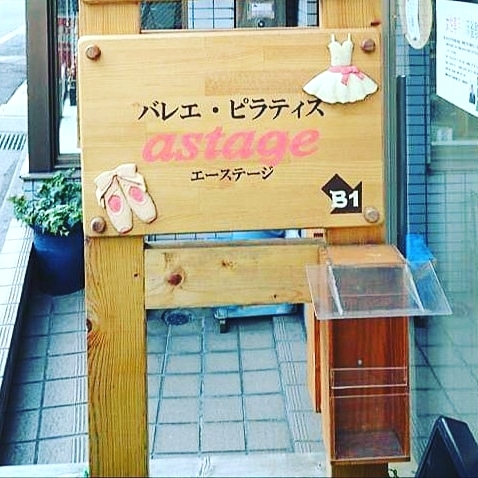 バレエ・ピラティス
astage
エーステージ
B1